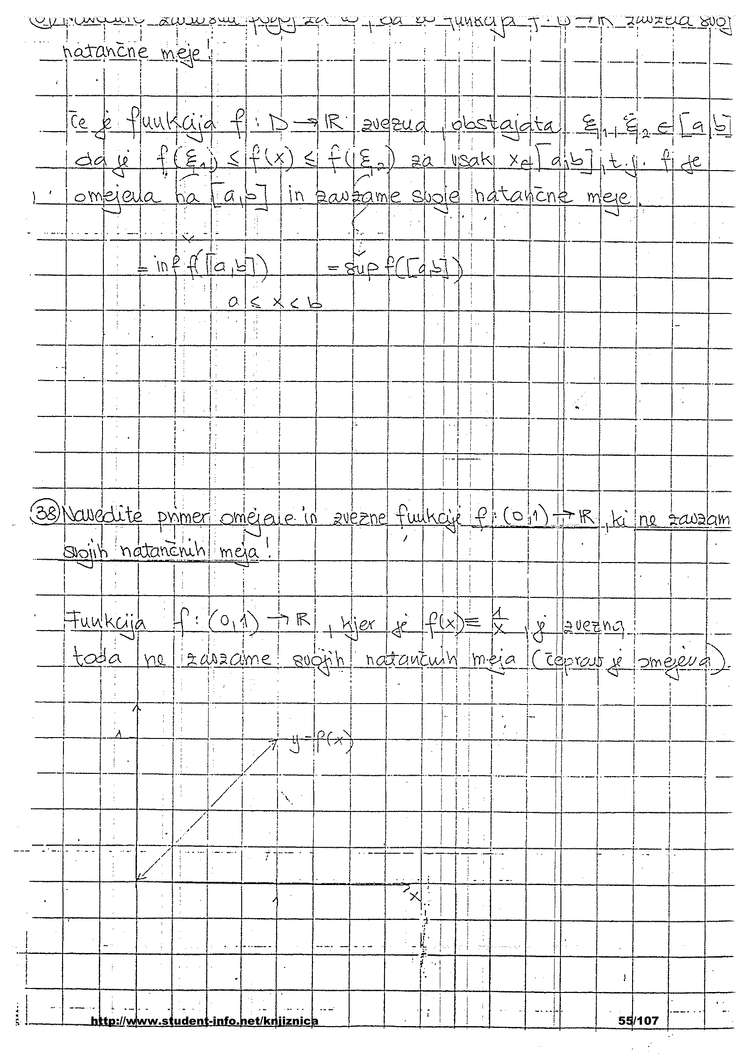 natančne meje!
Če je funkcija f : D → ℝ zvezna, obstajata ξ₁, ξ₂ ∈ [a,b]
da je f(ξ₁) ≤ f(x) ≤ f(ξ₂) za vsak x∈[a,b], t.j. f je
omejena na [a,b] in zavzame svoje natančne meje.
= inf f([a,b]) = sup f([a,b])
a ≤ x < b
38 Navedite primer omejene in zvezne funkcije f : (0,1) → ℝ, ki ne zavzam
svojih natančnih meja!
Funkcija f : (0,1) → ℝ, kjer je f(x) = 1/x, je zvezna,
toda ne zavzame svojih natančnih meja (čeprav je omejena).
1 y=f(x)
1 x
http://www.student-info.net/knjiznica 55/107